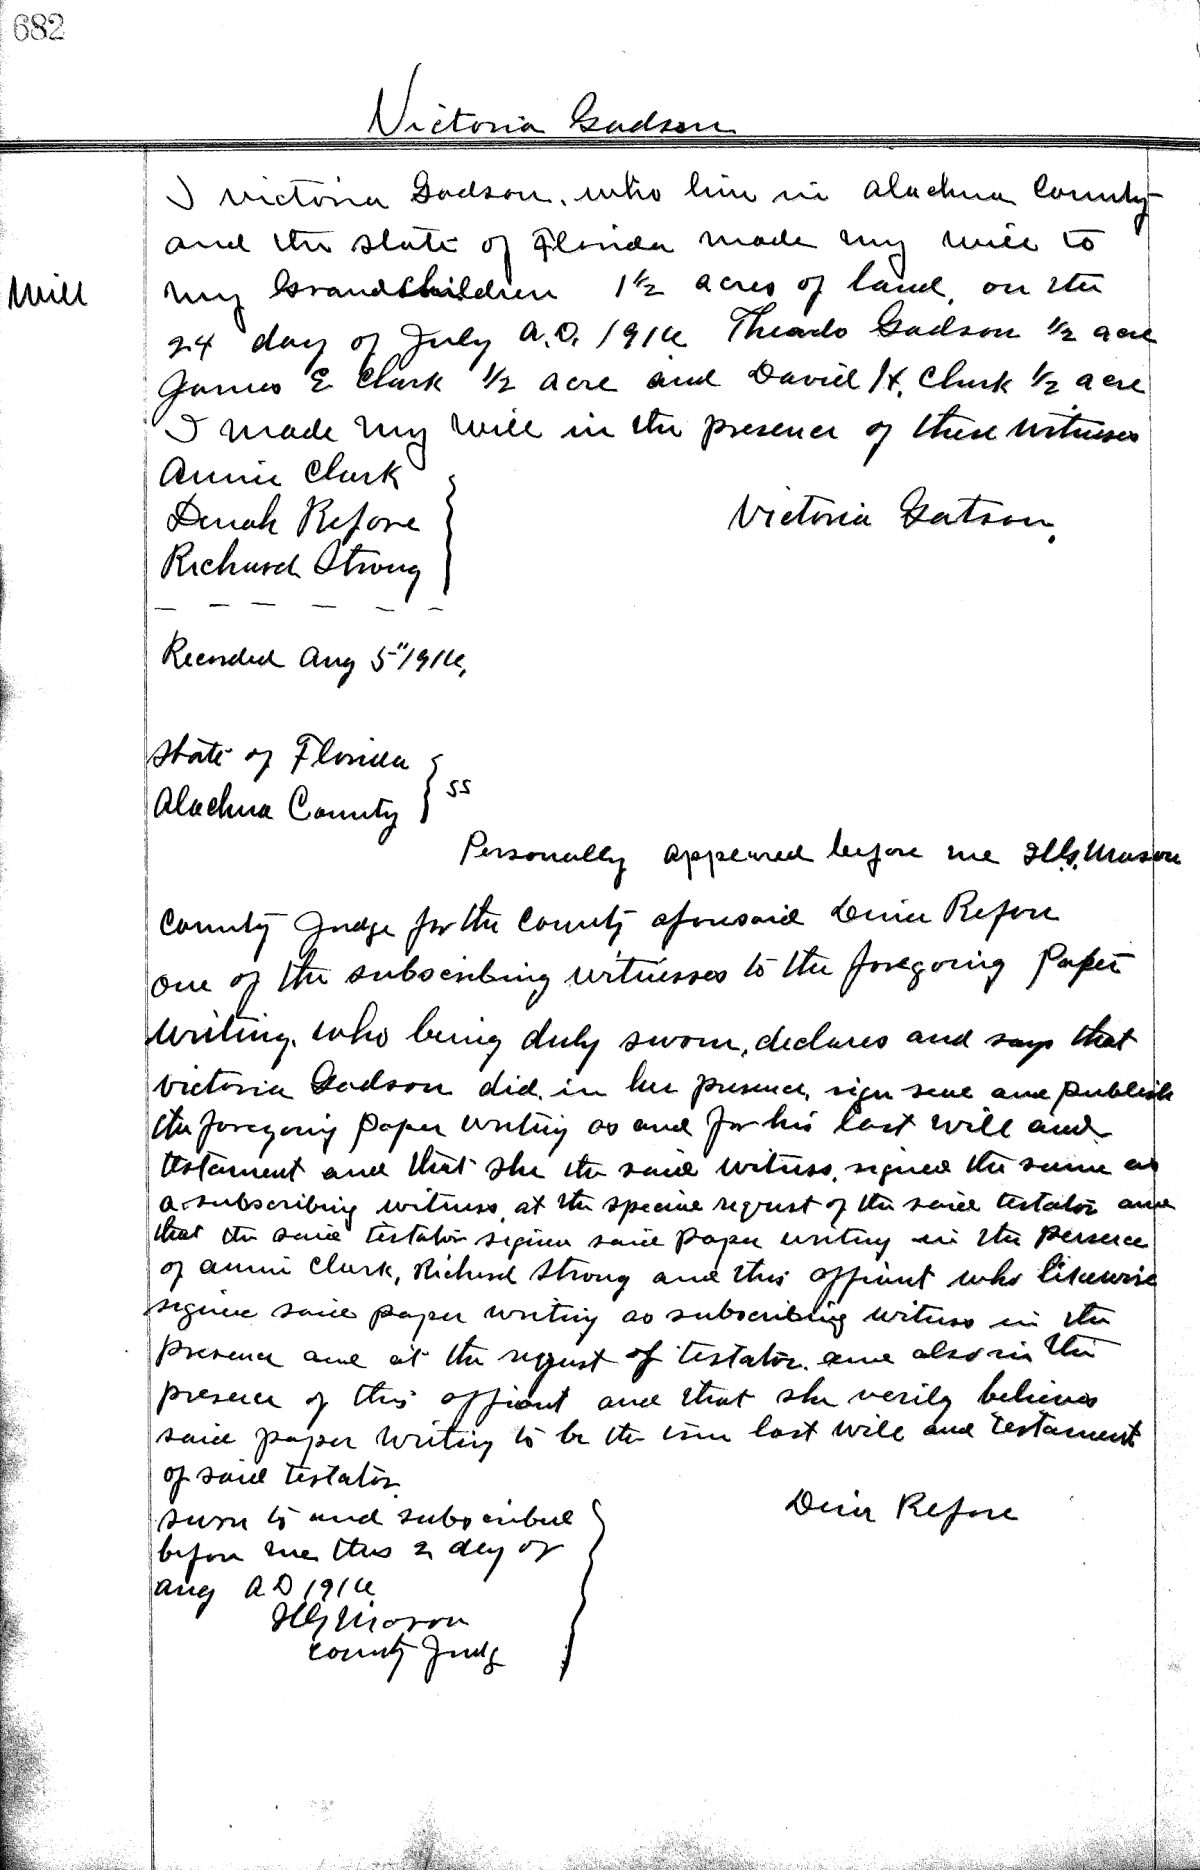 682
Victoria Gadson
I Victoria Gadson, who live in Alachua County
and the State of Florida made my will to
Will
my Grandchildren 1 1/2 acres of land, on the
24 day of July A.D. 1914 Theado Gadson 1/2 acre
James E Clark 1/2 acre and David H. Clark 1/2 acre
I made my will in the presence of these witnesses
Annie Clark
Dinah Refore
Victoria Gatson.
Richard Strong
Recorded Aug 5" 1914,
State of Florida
Alachua County } SS
Personally appeared before me H.G. Mason
County Judge for the County aforesaid Dina Refore
one of the subscribing witnesses to the foregoing Paper
writing, who being duly sworn, declares and says that
Victoria Gadson did, in her presence, sign seal and publish
the foregoing paper writing as and for his last will and
testament and that she the said witness, signed the same as
a subscribing witness, at the special request of the said testator and
that the said testator signed said paper writing in the presence
of Annie Clark, Richard Strong and this affiant who likewise
signed said paper writing as subscribing witness in the
presence and at the request of testator. and also in the
presence of this affiant and that she verily believes
said paper writing to be the true last will and testament
of said testator.
Dina Refore
Sworn to and subscribed
before me this 2 day of
Aug A D 1914
HG Mason
County Judge